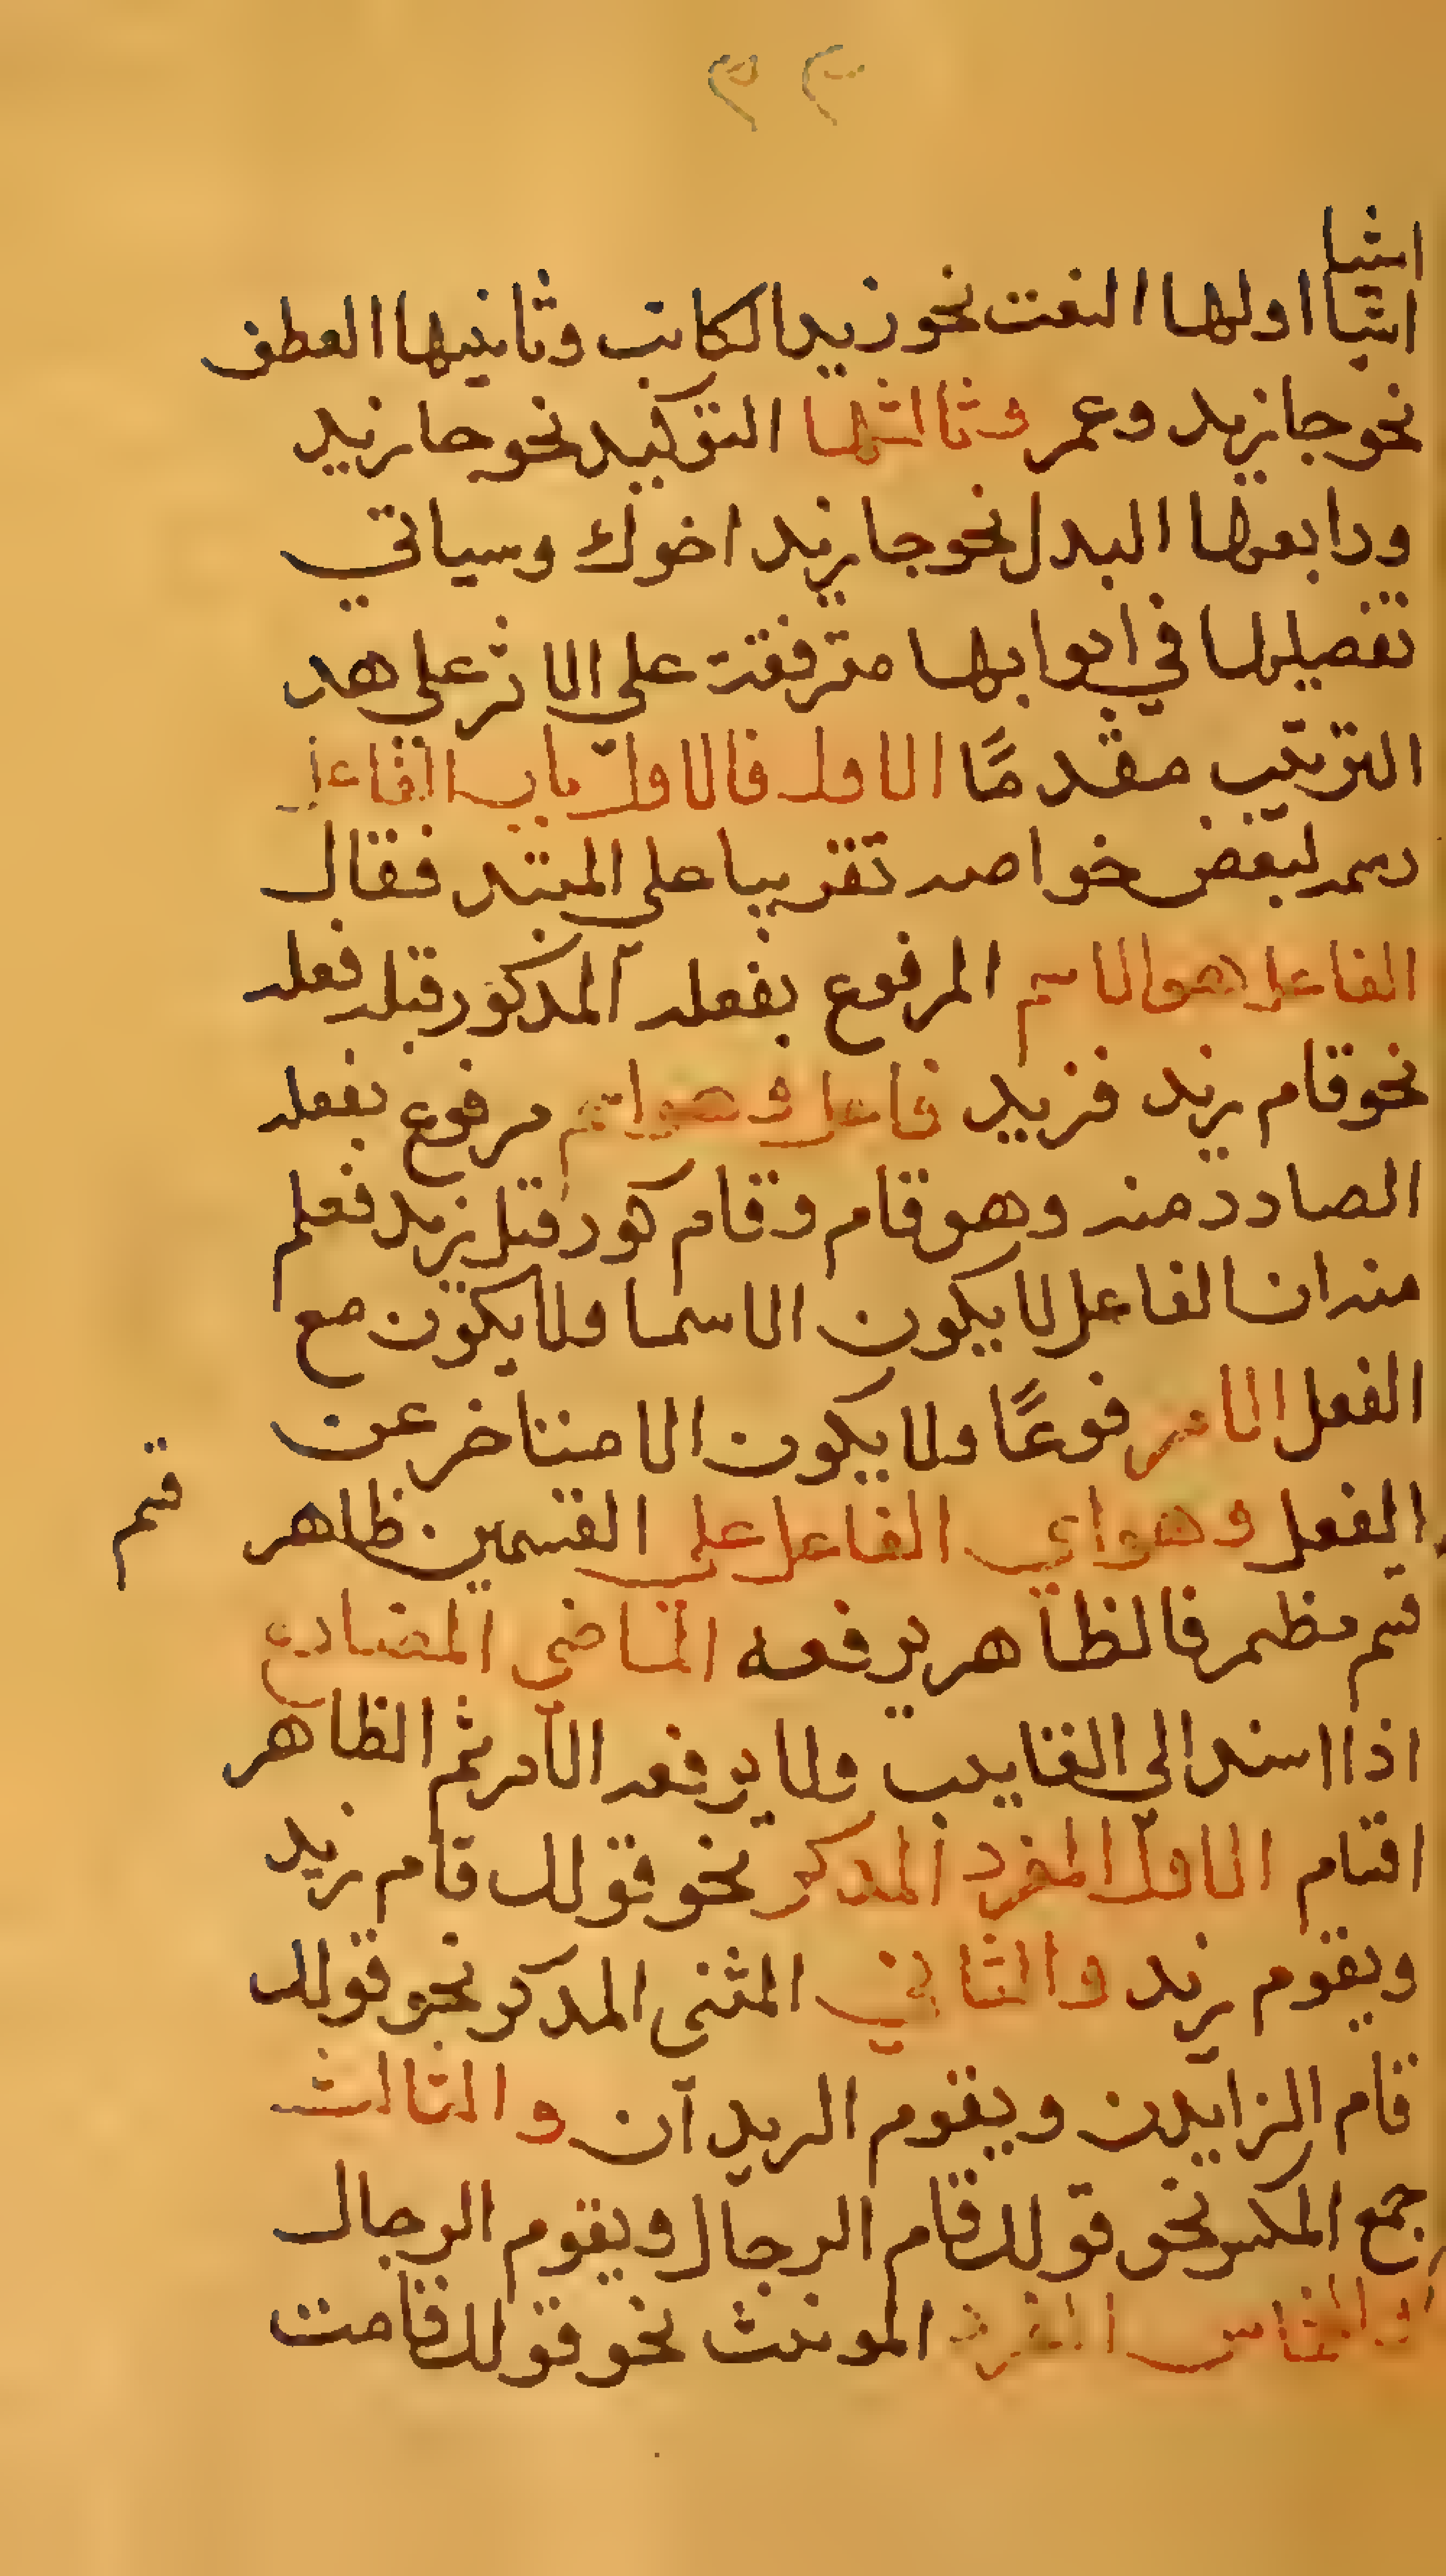 اشيا
اشيا اولها النعت نحو زيد الكاتب وثانيها العطف
نحو جا زيد وعمر وثالثها التوكيد نحو جا زيد
ورابعها البدل نحو جا زيد اخوك وسياتي
تفصيلها في ابوابها مترفقة علي الاثر علي هد
الترتيب مقدمًا الاول فالاول باب الفاعل
رسمه لبعض خواصه تقريبا علي المبتد فقال
الفاعل هو الاسم المرفوع بفعله المذكور قبله فعله
نحو قام زيد فزيد فاعل وهو اسم مرفوع بفعله
الصادد منه وهو قام وقام كور قبل زيد فعلم
منه ان الفاعل لا يكون الا سما ولا يكون مع
الفعل الا مرفوعًا ولا يكون الا متاخر عن
الفعل وهو اي الفاعل علي القسمين ظاهر قسم
قسم مظمر فالظاهر يرفعه الماضي المضارع
اذا اسند الى الغايب ولا يرفعه الامر ثم الظاهر
اقسام الاول المفرد المدكر نحو قولك قام زيد
ويقوم زيد والثاني المثنى المدكر نحو قولك
قام الزايدن ويقوم الزيدآن والثالث
جمع المكسر نحو قولك قام الرجال ويقوم الرجال
والخامس المفرد المونث نحو قولك قامت